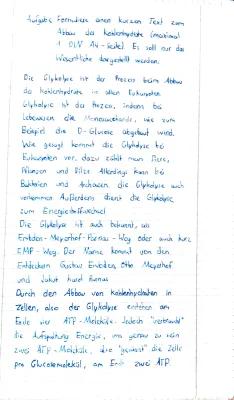 Aufgabe: Formuliere einen kurzen Text zum
Abbau der Kohlenhydrate (maximal
1 DIN A4-Seite). Es soll nur das
Wesentliche dargestellt werden.
Die Glykolyse ist der Prozess beim Abbau
der Kohlenhydrate in allen Eukaryoten.
Glykolyse ist der Prozess, indem bei
Lebewesen die Monosaccharide, wie zum
Beispiel die D-Glucose abgebaut wird.
Wie gesagt kommt die Glykolyse bei
Eukaryoten vor, dazu zählt man Tiere,
Pflanzen und Pilze. Allerdings kann bei
Bakterien und Archaeen, die Glykolyse auch
vorkommen. Außerdem dient die Glykolyse
zum Energiestoffwechsel
Die Glykolyse ist auch bekannt, als
Embden-Meyerhof-Parnas-Weg oder auch kurz
EMP-Weg. Der Name kommt von den
Entdeckern Gustav Embden, Otto Meyerhof
und Jakub Karol Parnas
Durch den Abbau von Kohlenhydraten in
Zellen, also der Glykolyse entstehen am
Ende vier ATP-Moleküle. Jedoch "verbraucht"
die Aufspaltung Energie, und genau zu
zwei ATP-Moleküle, also "gewinnt" die Zelle
pro Glucosemolekül, am Ende zwei ATP.